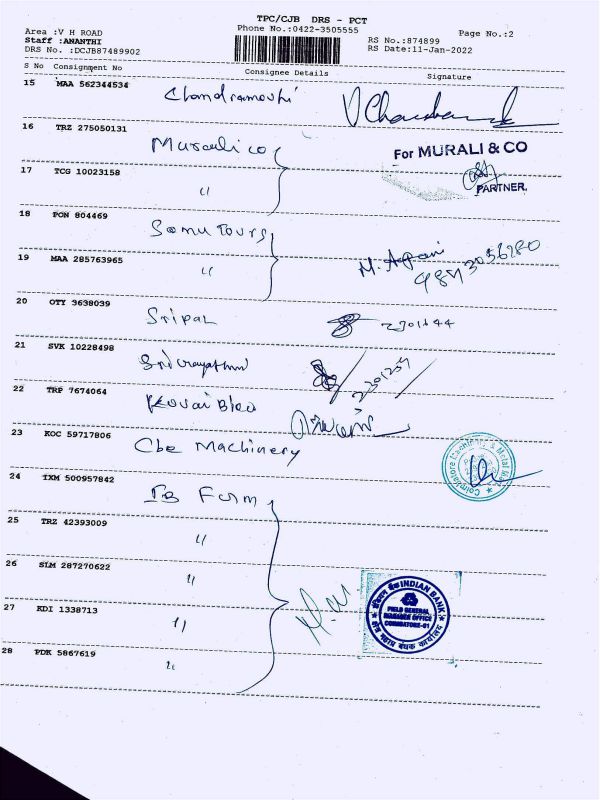 TPC/CJB DRS - PCT
Area :V H ROAD Phone No.:0422-3505555 Page No.:2
Staff :ANANTHI RS No.:874899
DRS No. :DCJB87489902 RS Date:11-Jan-2022
S No Consignment No Consignee Details Signature
15 MAA 562344534 Chandramouhi
16 TRZ 275050131 Murali co
For MURALI & CO
PARTNER.
17 TCG 10023158 "
18 PON 804469 Somu Tours
19 MAA 285763965 "
20 OTY 3638039 Sripal
21 SVK 10228498
22 TRP 7674064 Kovai Bleo
23 KOC 59717806 Cbe Machinery
24 TXM 500957842 IB Form
25 TRZ 42393009 "
26 SLM 287270622 "
INDIAN BANK
FIELD GENERAL
MANAGER OFFICE
COIMBATORE-01
27 KDI 1338713 "
28 PDK 5867619 "